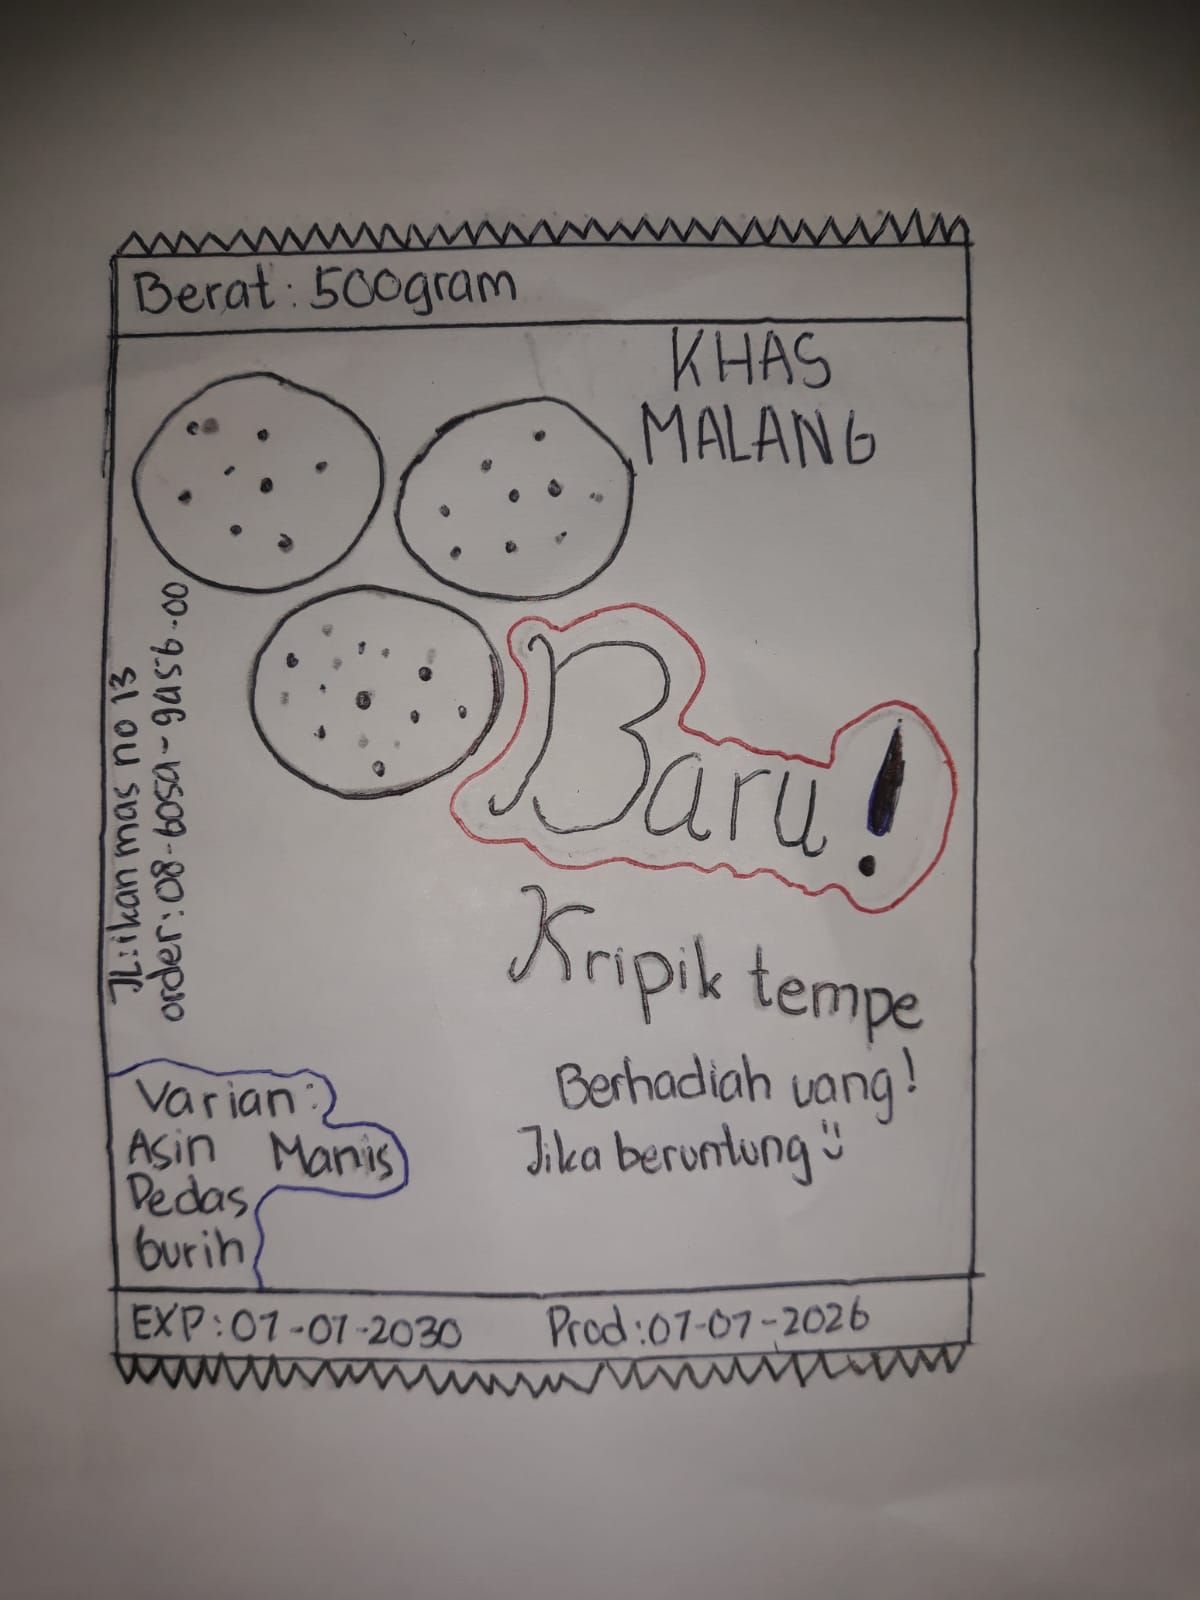 Berat: 500gram
KHAS
MALANG
JL: ikan mas no 13
order: 08-605a-9a56-00
Baru!
Kripik tempe
Berhadiah uang!
Jika beruntung
Varian:
Asin Manis
Pedas
Gurih
EXP: 07-07-2030 Prod: 07-07-2026